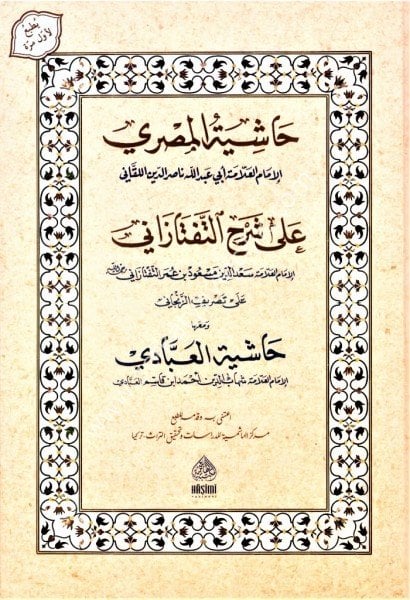 يطبع
لأول مرة
حاشية المصري
الإمام العلامة أبي عبد الله ناصر الدين اللقاني
على شرح التفتازاني
الإمام العلامة سعد الدين مسعود بن عمر التفتازاني
على تصريف الزنجاني
ومعها
حاشية العبادي
الإمام العلامة شهاب الدين أحمد ابن قاسم العبادي
اعتنى به وقام بطبعه
مركز الهاشمية للدراسات وتحقيق التراث، تركيا
HAŞİMİ
YAYINEVİ